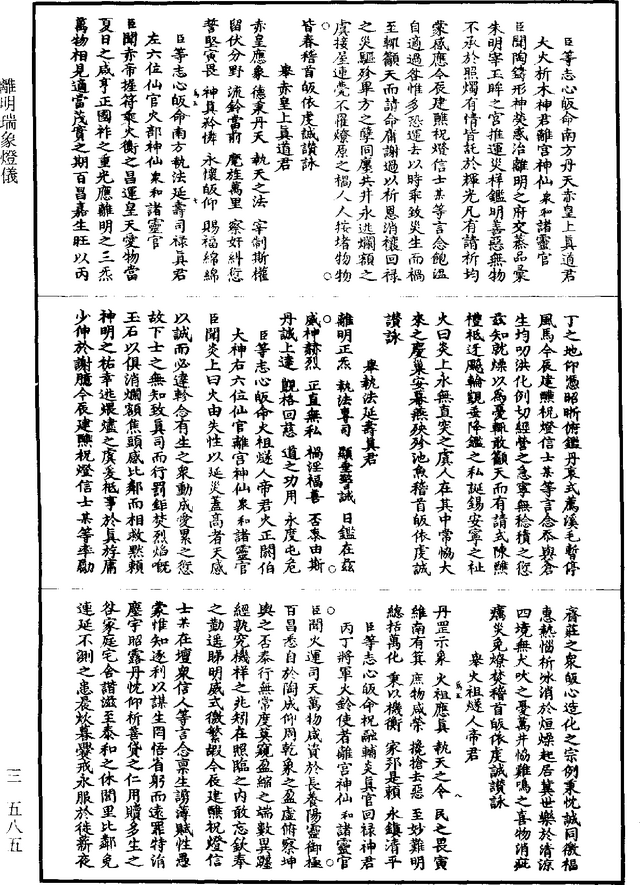 臣等志心皈命南方丹天赤皇上真道君
大火析木神君離宮神仙衆和諸靈官
臣聞陶鑄形神奠慼冶離明之府交蒸品彙
朱明宰玉眸之宮推運災祥鑑明善惡無物
不承於照燭有情皆託於輝光凡有請祈均
蒙感應今辰建醮祝燈信士某等言念飽溫
自適過咎惟多恐運去以時乖致災生而禍
至輒籲天而請命庸謝過以祈恩消穰回祿
之災驅殄畢方之孽同廛共井永逃爛額之
虞接屋連甍不罹燎原之禍人人按堵物物
皆春稽首皈依虔誠讚詠
舉赤皇上真道君
赤皇應象 德秉丹天 執天之法 宰制斯權
留伏分野 流鈴當前 麾旌萬里 察奸糾愆
誓堅寅畏 神真矜憐 永懷皈仰 賜福綿綿
臣等志心皈命南方執法延壽司祿真君
左六位仙官火部神仙衆和諸靈官
臣聞赤帝握符乘火衡之昌運皇天愛物當
夏日之咸亨正國祚之重光應離明之三炁
萬物相見適當茂實之期百昌嘉生旺以丙
丁之地仰憑昭晰俯鑑丹衷式薦溪毛暫停
風馬今辰建醮祝燈信士某等言念忝與含
生均叨洪化例切經營之急寧無稔積之愆
茲知就燥以爲憂輒敢籲天而有請式陳醮
禮祗迓颷輪覬垂降鑑之私誕錫安寧之祉
火曰炎上永無直突之虞人在其中常恊大
來之慶巢安暮燕殃殄池魚稽首皈依虔誠
讚詠
舉執法延壽真君
離明正炁 執法專司 顯垂譽誠 日鑑在茲
威神赫烈 正直無私 禍淫福善 否泰由斯
丹誠上達 覬格回慈 道之功用 永度屯危
臣等志心皈命火祖燧人帝君火正閼伯
大神右六位仙官離宮神仙衆和諸靈官
臣聞炎上曰火由失性以延災蓋高者天感
以誠而必違軫念有生之衆動成愛累之愆
故下士之無知致真司而行罰鉅焚烈焰嘅
玉石以俱消爛額焦頭感比鄰而相救默賴
神明之祐幸逃煨燼之虞爰祗事於真游庸
少伸於謝臆今辰建醮祝燈信士某等率勵
齋莊之衆皈心造化之宗例秉忱誠同徼福
惠熱惱祈冰消於烜燥起居冀世樂於清涼
四境無犬吠之憂萬井恊雞鳴之喜物消疵
癘災免燎焚稽首皈依虔誠讚詠
舉火祖燧人帝君
丹罡示象 火祖應真 執天之令 民之畏寅
維南有箕 庶物咸榮 攙搶去惡 至妙難明
總括萬化 秉以機衡 家邦是賴 永鎮清平
臣等志心皈命祝融輔炎真官回祿神君
丙丁將軍火鈴使者離宮神仙和諸靈官
臣聞火運司天萬物咸資於長養陽靈御極
百昌悉自於陶成仰周乾象之盈虛俯察坤
輿之否泰行無常度莫窺盈縮之端數異躔
經孰究機祥之兆矧在照臨之內敢忘欽奉
之勤遥睇明威式徼繁嘏今辰建醮祝燈信
士某在壇衆信人等言念稟生謭薄賦性愚
蒙惟知逐利以謀生罔悟省躬而遠罪特消
塵宇昭露丹忱仰祈善貸之仁用贖多生之
咎家庭宅舍諧滋至泰和之休閭里比鄰免
連延不測之患晨炊暮爨戒永服於徙薪夜
離明瑞象燈儀
三 五八五